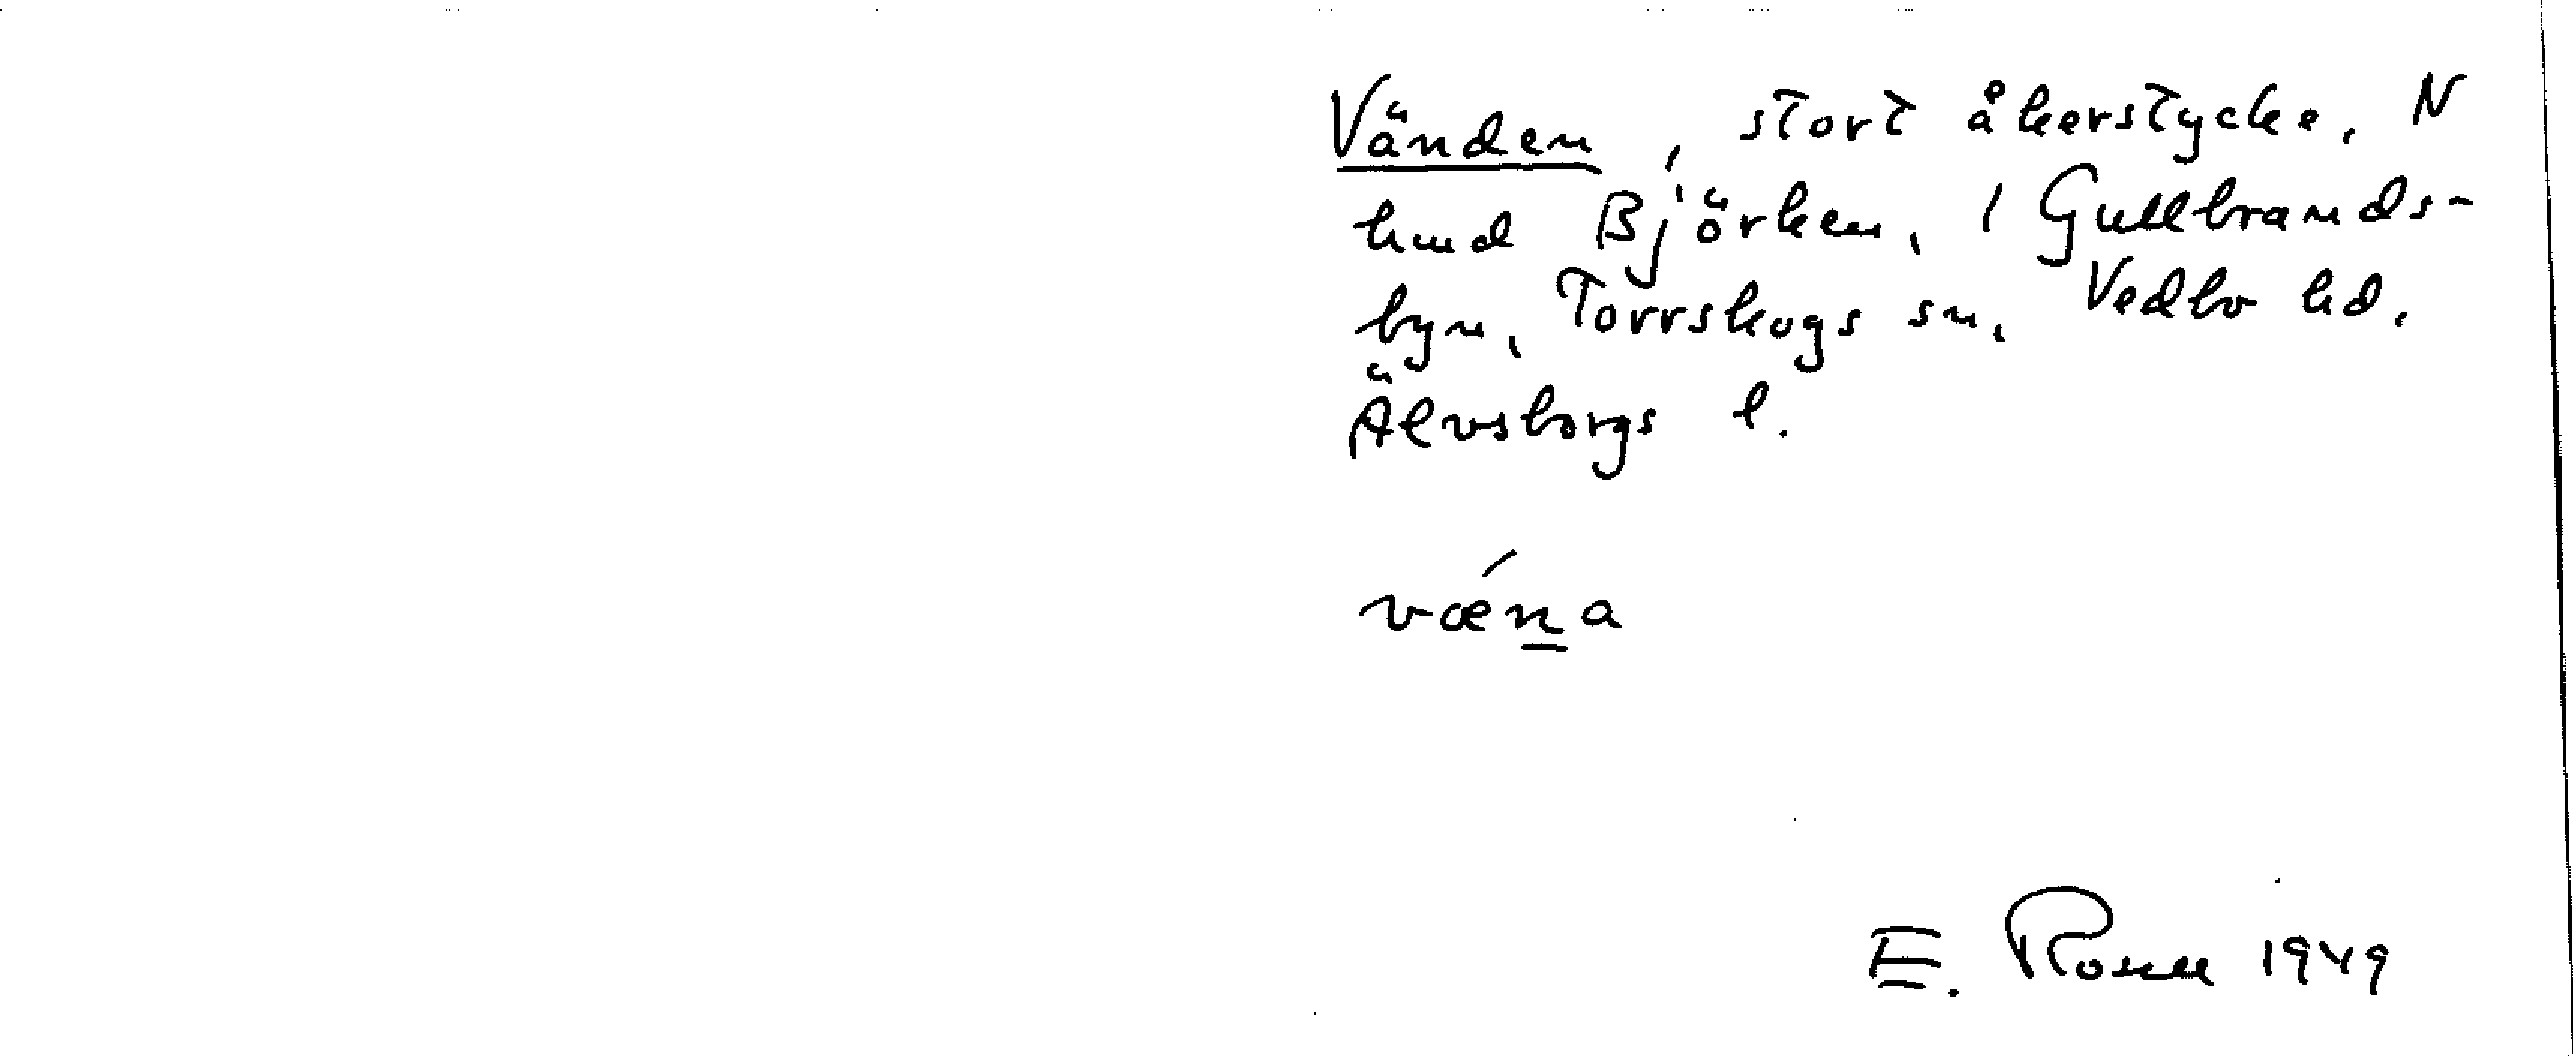 Vänden, stort åkerstycke, N
hmd Björken, i Gullbrands-
byn, Torrskogs sn, Vedbo hd,
Älvsborgs l.
væ´na
E. Rosell 1949